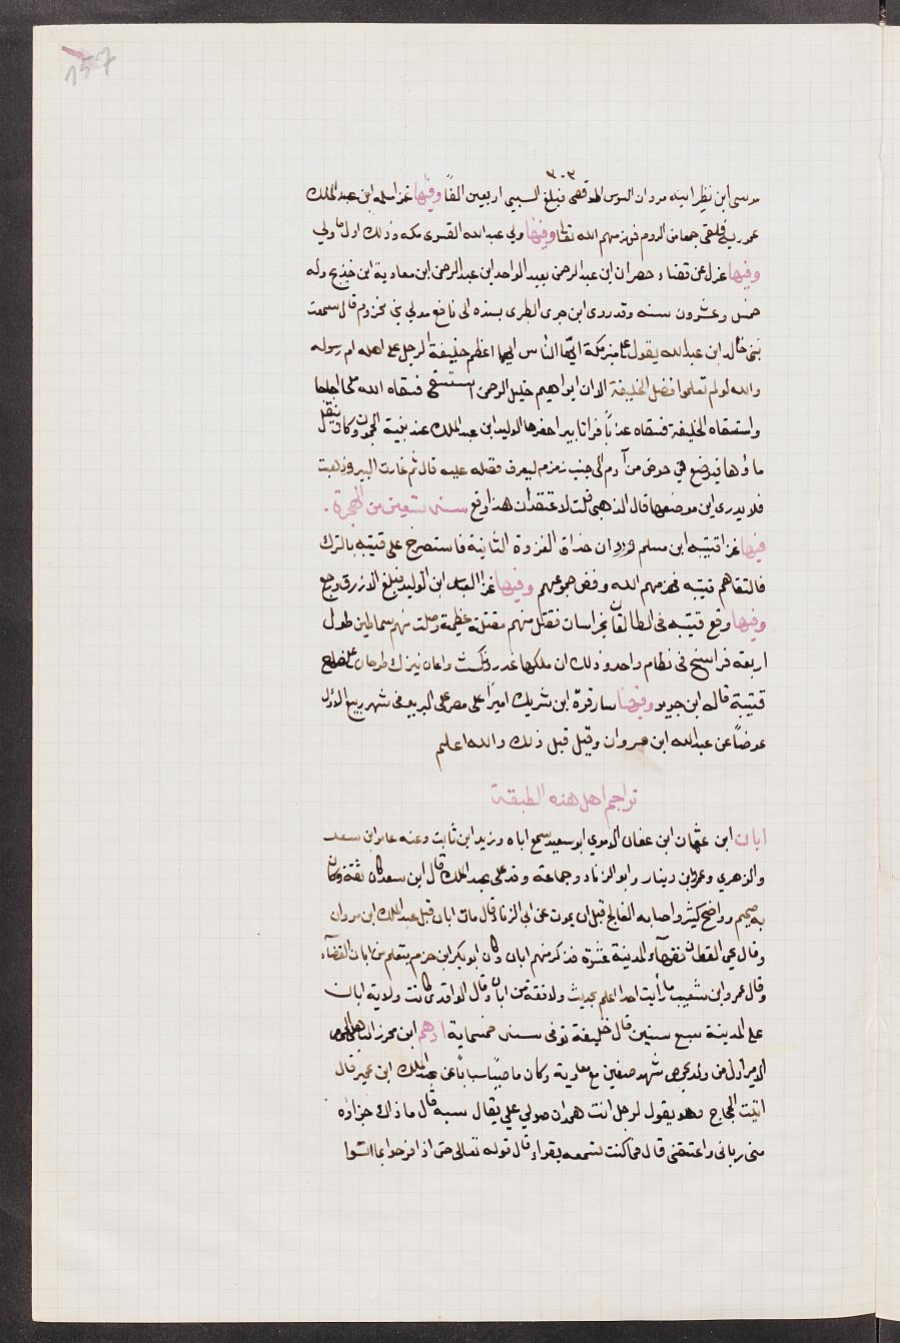 157
٣٠٣
موسى ابن نصير ابنه مروان السوس الاقصى فبلغ السبي اربعين الفًا وفيها غزا مسلمه ابن عبد الملك
عموريه فلقى جمعا من الروم فهزمهم الله تعالى وفيها ولي عبد الله القسرى مكه وذلك اول ما ولي
وفيها عزل عن قضاء مصر ان ابن عبد الرحمن بعبد الواحد ابن عبد الرحمن ابن معاوية ابن خديج وله
خمس وعشرون سنه وقد روى ابن جرى الطبرى بسنده الى نافع مولي بني مخزوم قال سمعت
خالد ابن عبد الله يقول على منبر مكة ايها الناس ايهما اعظم خليفة الرجل على اهله ام رسوله
والله لو لم تعلموا فضل الخليفة الا ان ابراهيم خليل الرحمن استسقى فسقاه الله ملحا اجاجا
واستسقاه الخليفة فسقاه عذبًا فراتا بيرا حفرها الوليد ابن عبد الملك عند ثنية الحجون وكان ينقل
ماؤها فيوضع في حوض من آدم الى جنب زمزم ليعرف فضله عليه قال ثم غارت البير وذهبت
فلا يدرى اين موضعها قال الذهبى قلت لا عتقد ان هذا وقع سنه تسعين من الهجرة.
فيها غزا قتيبه ابن مسلم وردان خداة الغزوة الثانية فاستصرخ على قتيبه بالترك
فالتقاهم قتيبه فهزمهم الله وفض جموعهم وفيها غزا العباس ابن الوليد فبلغ الازرق ورجع
وفيها وقع قتيبه في الطالقان بخراسان فقتل منهم مقتلة عظيمة وصلت منهم سماطين طول
اربعة فراسخ فى نظام واحد وذلك ان ملكها غدر ونكث واعان نيزك طرخان على خلع
قتيبة قاله ابن جرير وفيها سار قرة ابن شريك اميرًا على مصر على البريد فى شهر ربيع الاول
عوضًا عن عبد الله ابن مروان وقيل قبل ذلك والله اعلم
تراجم اهل هذه الطبقة
ابان ابن عثمان ابن عفان الاموي ابو سعيد سمع اباه وزيد ابن ثابت وعنه عامر ابن سعد
والزهري وعمرو ابن دينار وابو الزناد وجماعة وفد على عبد الملك قال ابن سعد كان ثقة وكان
به صمم ووضح كثير واصابه الفالج قبل ان يموت عن ابى الزناد قال مات ابان قبل عبد الملك ابن مروان
وقال يحي القطان فقهآء المدينة عشرة فذكر منهم ابان وكان ابو بكر ابن حزم يتعلم من ابان القضآء
وقال عمرو ابن شعيب ما رأيت احدا اعلم بحديث ولا فقه من ابان وقال الواقدى كانت ولاية ابان
على المدينة سبع سنين قال خليفة توفى سنه خمسماية ادهم ابن محرز الباهلي الحمصي
الامير اول من ولد بحمص شهد صفين مع معاوية وكان ناصبيا سبابًا عن عبد الملك ابن عمير قال
اتيت الحجاج وهو يقول لرجل انت همدان مولي علي يقال سبه قال ما ذاك جزاؤه
منى ربانى واعتقنى قال فما كنت تسمعه يقراء قال قوله تعالى حتى اذا فرحوا بما اتوا